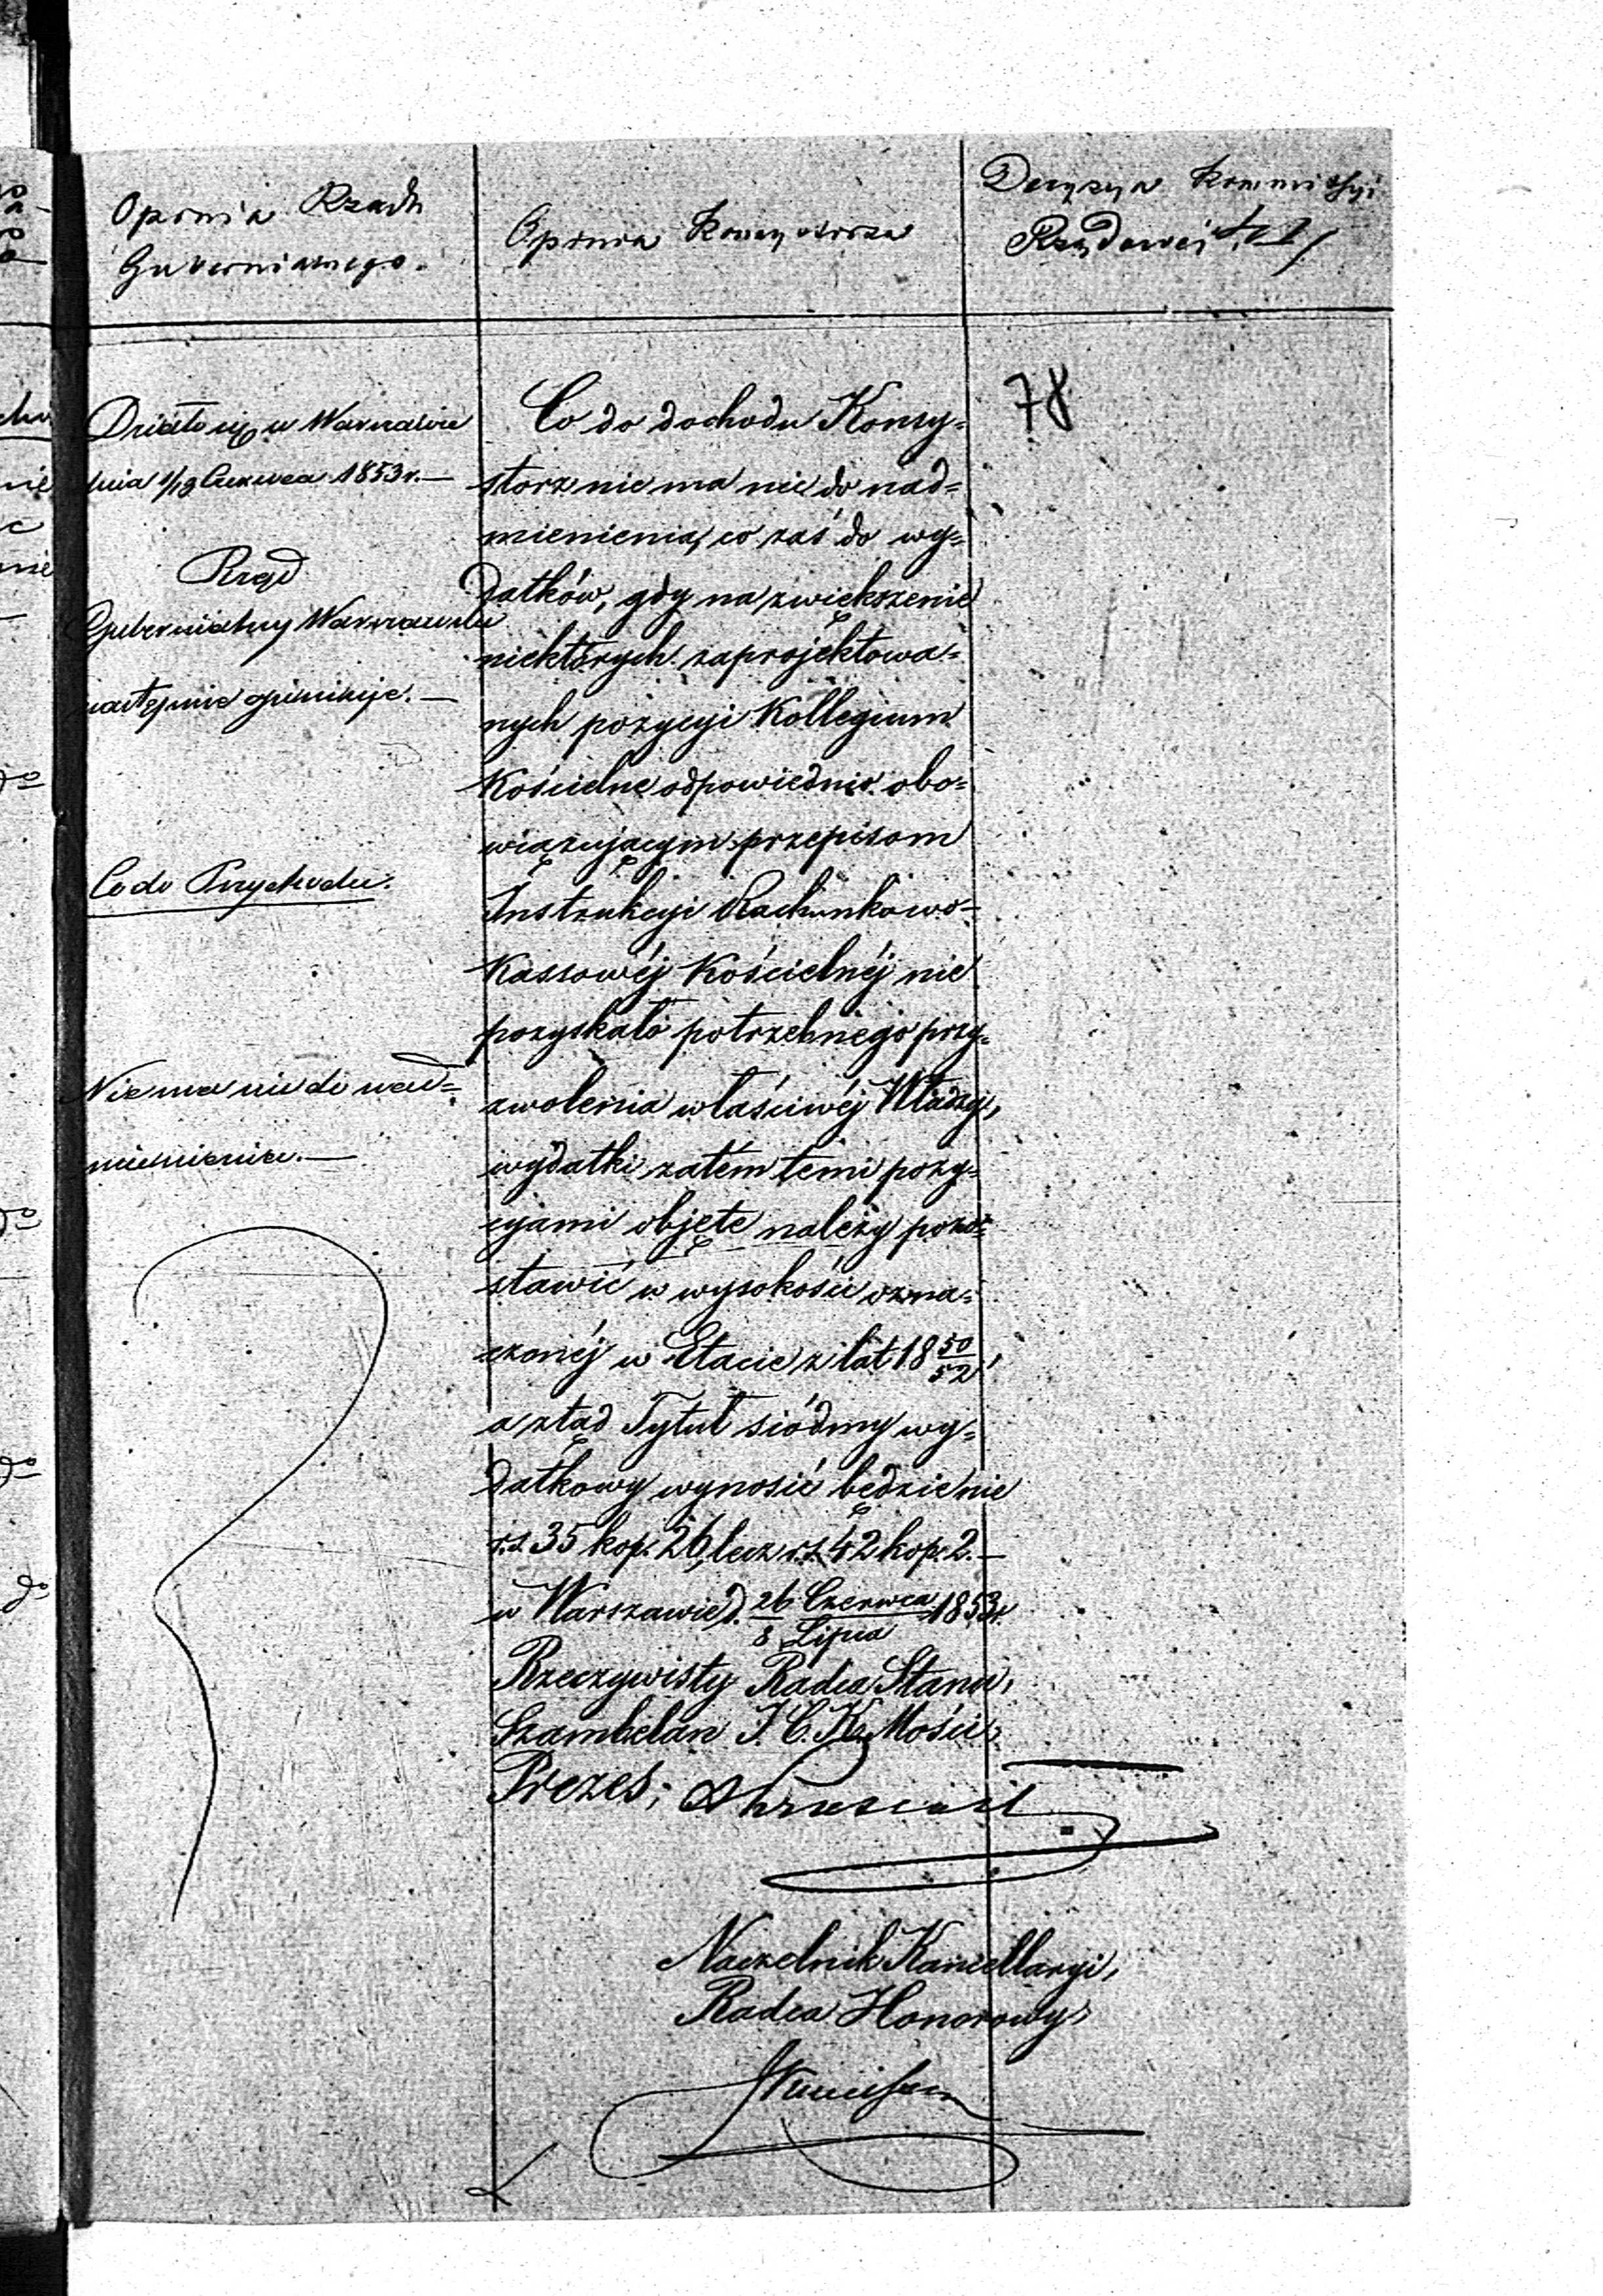 Opinia Rządu
Gubernialnego.
Opinia Konsystorza
Decyzya Kommissyi
Rządowéj
Działo się w Warszawie
dnia 1/19 Czerwca 1853 r.—
Rząd
Gubernialny Warszawski
następnie opiniuje.—
Co do Przychodu.
Nie ma nic do nad=
mienienia.—
Co do dochodu Konsy=
storz nie ma nic do nad=
mienienia, co zaś do wy=
datków, gdy na zwiększenie
niektórych zaprojektowa=
nych pozycyi Kollegium
Kościelne odpowiednio obo=
wiązującym przepisom
Instrukcyi Rachunkowo-
Kassowéj Kościelnéj nie
pozyskało potrzebnego przy=
zwolenia właściwéj Władzy,
wydatki zatém temi pozy=
cyjami objęte należy pozo=
stawić w wysokości ozna=
czonéj w Etacie z lat 18 50/52,
a ztąd Tytuł siódmy wy=
datkowy wynosić będzie nie
r.s. 35 kop. 26, lecz r.s. 42 kop. 2.—
w Warszawie d. 26 Czerwca/8 Lipca 1853 r.
Rzeczywisty Radca Stanu,
Szambelan J. C. K. Mości,
Prezes;
Naczelnik Kancellaryi,
Radca Honorowy,
78